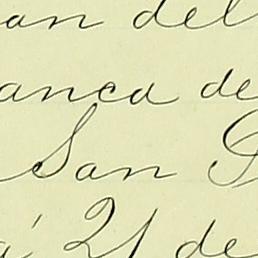 an del
anca de
San
á 21 de